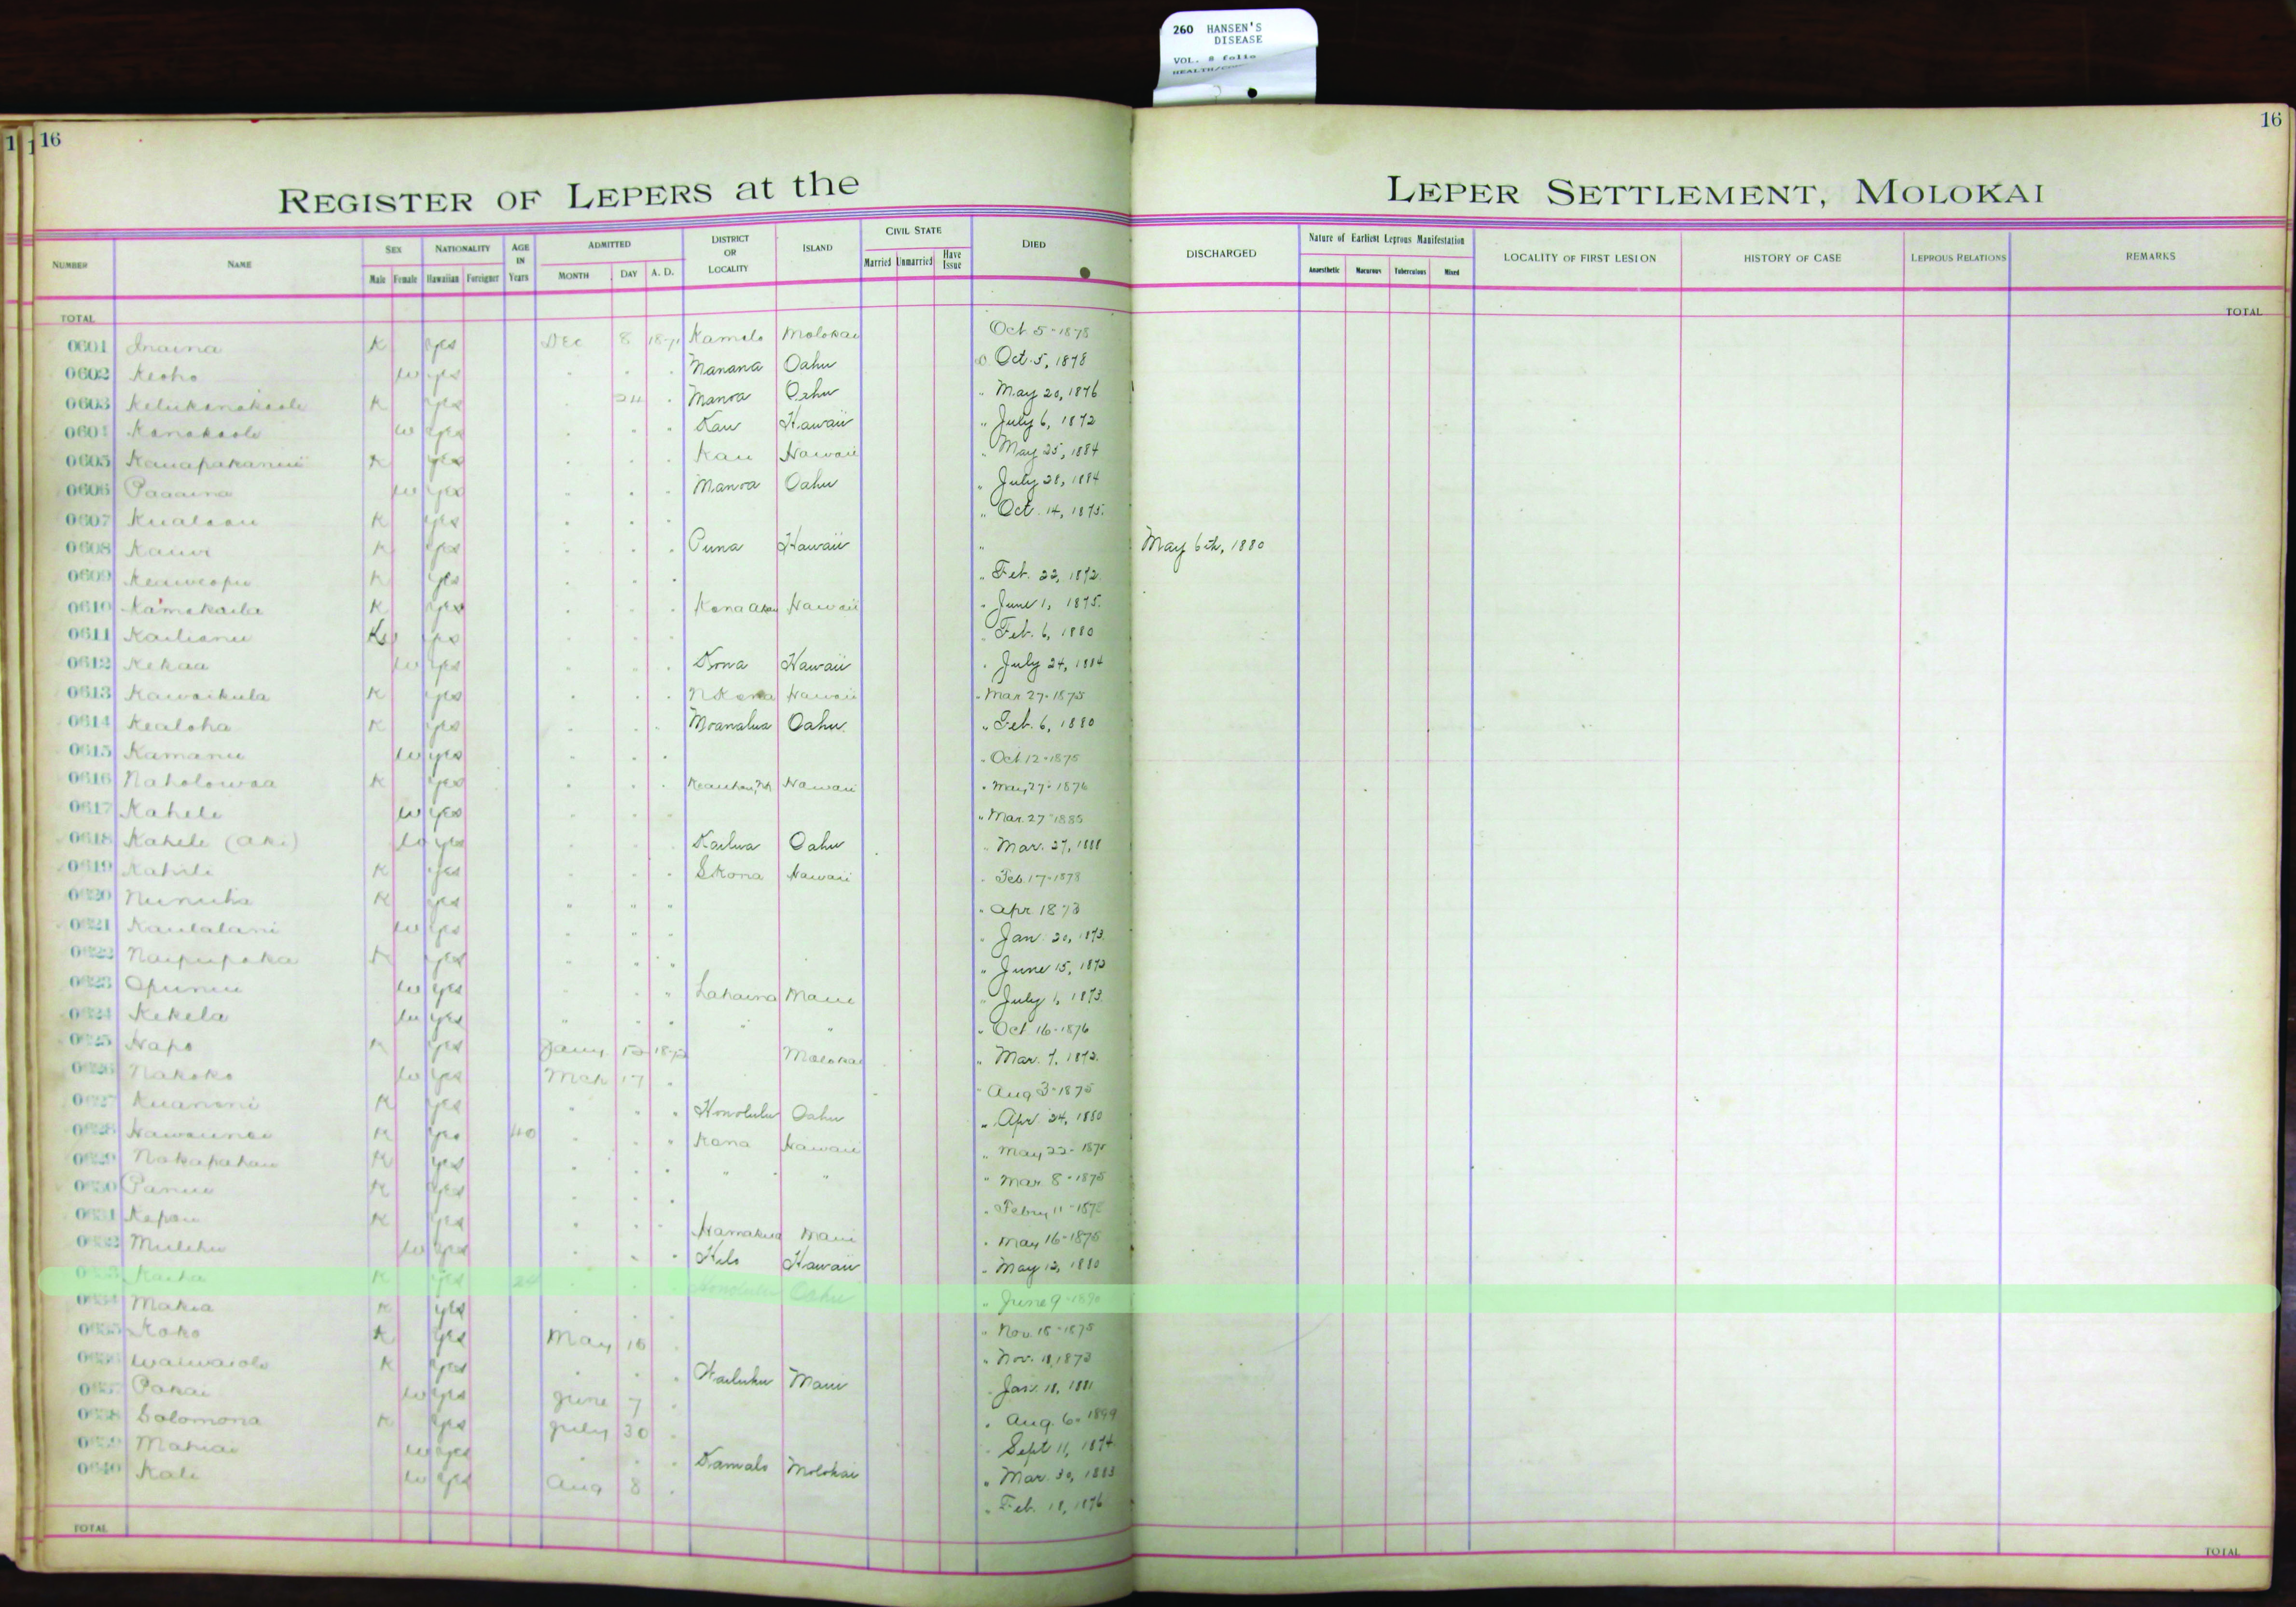 260 HANSEN'S
DISEASE
VOL. 8 folio
16
16
REGISTER OF LEPERS at the LEPER SETTLEMENT, MOLOKAI
NUMBER NAME SEX NATIONALITY AGE IN Years ADMITTED DISTRICT OR LOCALITY ISLAND CIVIL STATE DIED DISCHARGED Nature of Earliest Leprous Manifestation LOCALITY OF FIRST LESION HISTORY OF CASE LEPROUS RELATIONS REMARKS
Male Female Hawaiian Foreigner MONTH DAY A. D. Married Unmarried Have Issue Anaesthetic Macurous Tuberculous Mixed
TOTAL TOTAL
0601 Inaina K yes Dec 8 1871 Kamalo Molokai Oct 5-1878
0602 Keoho w yes Manana Oahu D Oct. 5, 1878
0603 K yes 24 Manoa Oahu " May 20, 1876
0604 Kanakaole w yes Kau Hawaii " July 6, 1872
0605 K yes Kau Hawaii " May 25, 1884
0606 Paaaina w yes Manoa Oahu " July 28, 1884
0607 K yes " Oct. 14, 1875.
0608 Kauwi K yes Puna Hawaii " May 6th, 1880
0609 K yes " Feb. 22, 1872.
0610 Kamakaila K yes Kona Akau Hawaii " June 1, 1875.
0611 Kailianu yes Feb. 6, 1880
0612 Kekaa w yes Kona Hawaii " July 24, 1884
0613 Kawaikula K yes N Kona Hawaii " Mar 27-1875
0614 Kealoha K yes Moanalua Oahu " Feb. 6, 1880
0615 Kamanu w yes " Oct 12-1875
0616 Naholowaa K yes Keauhou, NK Hawaii " May 27-1876
0617 Kahele w yes " Mar. 27-1885
0618 Kahele (Aki) w yes Kailua Oahu " Mar. 27, 1888
0619 Kahili K yes S Kona Hawaii " Feb. 17-1878
0620 K yes " " " " Apr 1873
0621 Kaulalani w yes " " Jan. 20, 1873.
0622 K yes " June 15, 1873
0623 Opunui w yes " Lahaina Maui " July 1, 1873.
0624 Kekela w yes " " " " Oct 16-1876
0625 Napo K yes Jany 1872 Molokai " Mar. 7, 1872.
0626 Nakoko w yes Mch 17 " Aug 3-1875
0627 Kuanoni K yes Honolulu Oahu " Apr. 24, 1880
0628 K yes 40 " Kona Hawaii " May 22-1875
0629 Nakapahau K yes " " " Mar. 8-1875
0630 Panui K yes " Febry 11-1878
0631 K yes Hamakua Maui " May 16-1875
0632 w yes Hilo Hawaii " May 12, 1880
K yes 24 Honolulu Oahu " June 9-1890
Makia K yes " Nov. 18-1875
Koko K yes May 18 " Nov. 11, 1873
K yes Wailuku Maui Jan. 18, 1881
Pakai w yes June 7 " Aug. 6. 1899
Solomona K yes July 30 Sept 11, 1874
Mahiai w yes Kamalo Molokai " Mar. 30, 1883
0640 Kali w yes Aug 8 " Feb. 18, 1876
TOTAL TOTAL